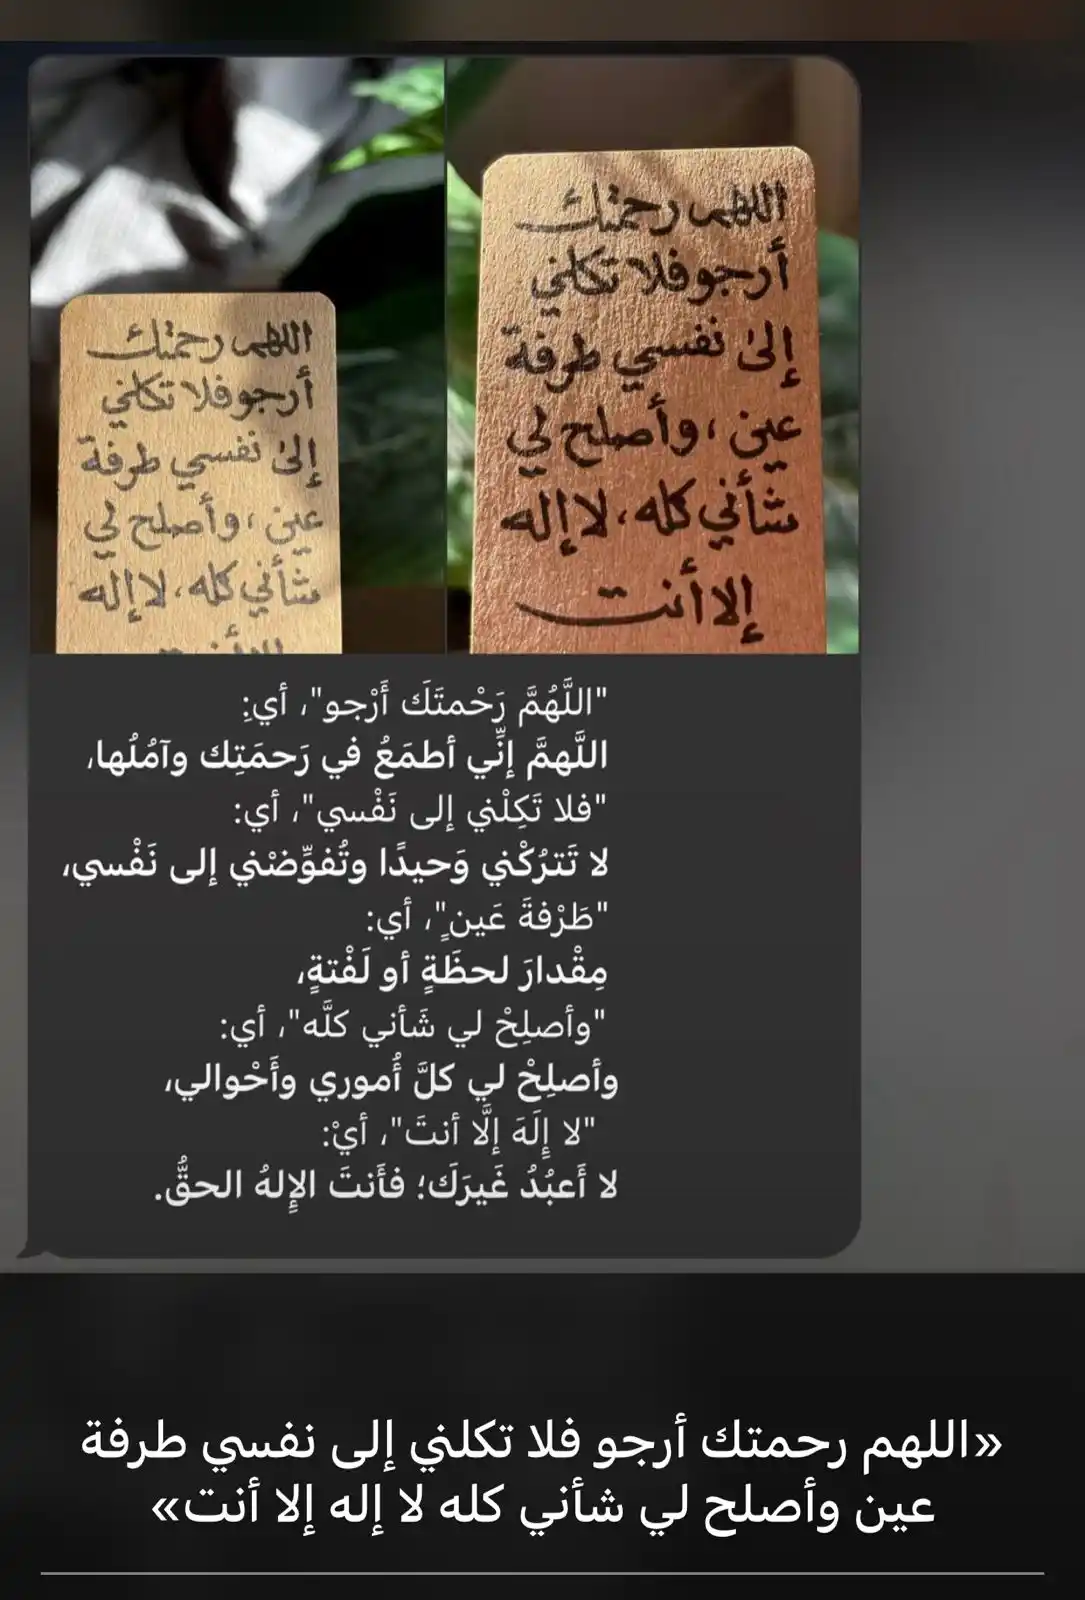 اللهم رحمتك
أرجو فلا تكلني
إلى نفسي طرفة
عين ، وأصلح لي
شأني كله ، لا إله
إلا أنت
اللهم رحمتك
أرجو فلا تكلني
إلى نفسي طرفة
عين ، وأصلح لي
شأني كله ، لا إله
إلا أنت
"اللَّهُمَّ رَحْمتَكَ أَرْجو"، أي:
اللَّهمَّ إنِّي أطمَعُ في رَحمَتِك وآمُلُها،
"فلا تَكِلْني إلى نَفْسي"، أي:
لا تَترُكْني وَحيدًا وتُفوِّضْني إلى نَفْسي،
"طَرْفةَ عَينٍ"، أي:
مِقْدارَ لحظَةٍ أو لَفْتةٍ،
"وأصلِحْ لي شَأني كلَّه"، أي:
وأصلِحْ لي كلَّ أُموري وأَحْوالي،
"لا إِلَهَ إلَّا أنتَ"، أيْ:
لا أَعبُدُ غَيرَكَ؛ فأَنتَ الإِلهُ الحقُّ.
«اللهم رحمتك أرجو فلا تكلني إلى نفسي طرفة
عين وأصلح لي شأني كله لا إله إلا أنت»